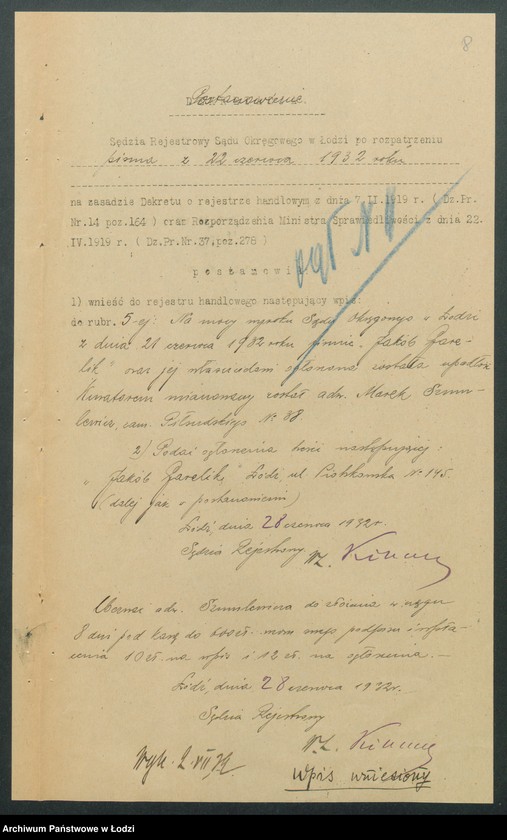 8
Postanowienie.
Sędzia Rejestrowy Sądu Okręgowego w Łodzi po rozpatrzeniu
pisma z 22 czerwca 1932 roku
na zasadzie Dekretu o rejestrze handlowym z dnia 7.II.1919 r. ( Dz.Pr.
Nr.14 poz.164 ) oraz Rozporządzenia Ministra Sprawiedliwości z dnia 22.
IV.1919 r. ( Dz.Pr.Nr.37,poz.278 )
postanowi
1) wnieść do rejestru handlowego następujący wpis:
do rubr. 5-ej: Na mocy wyroku Sądu Okręgowego w Łodzi
z dnia 21 czerwca 1932 roku firmie "Jakób Gare-
lik" oraz jej właścicielowi ogłoszona została upadłość
Kuratorem mianowany został adw. Marek Szmu-
lewicz, zam. Piłsudskiego № 88.
2) Podać ogłoszenia treści następującej:
"Jakób Garelik," Łódź, ul. Piotrkowska № 145.
(dalej jak w postanowieniu)
Łódź, dnia 28 czerwca 1932 r.
Sędzia Rejestrowy
Wz.
Wezwać adw. Szmulewicza do złożenia w ciągu
8 dni pod karą do
cenia 10 zł. na wpis i 12 zł. na ogłoszenia.-
Łódź, dnia 28 czerwca 1932 r.-
Sędzia Rejestrowy
Wz.
Wyk. 2.VII.32
Wpis wniesiony
Archiwum Państwowe w Łodzi